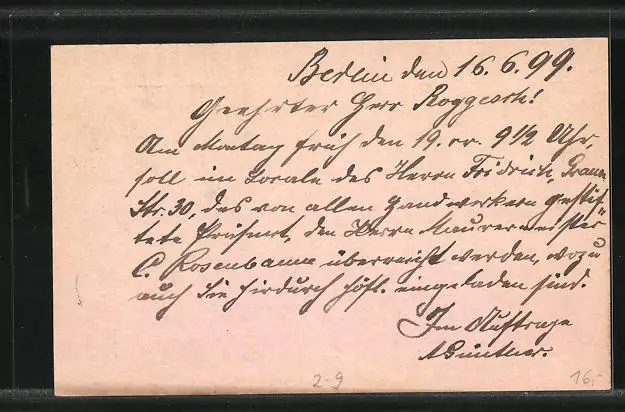 Berlin den 16.6.99.
Geehrter Herr Roggesch!
Am Montag früh den 19. cr. 9 1/2 Uhr,
soll im Locale des Herrn Fridrich, Braun
Str. 30, das von allen Handwerkern gestif-
tete Präsent, den Herrn Maurermeister
C. Rosenbaum überreicht werden, wozu
auch Sie hirdurch höfl. eingeladen sind.
Im Auftrage
A Güntner.
2-9
16,-